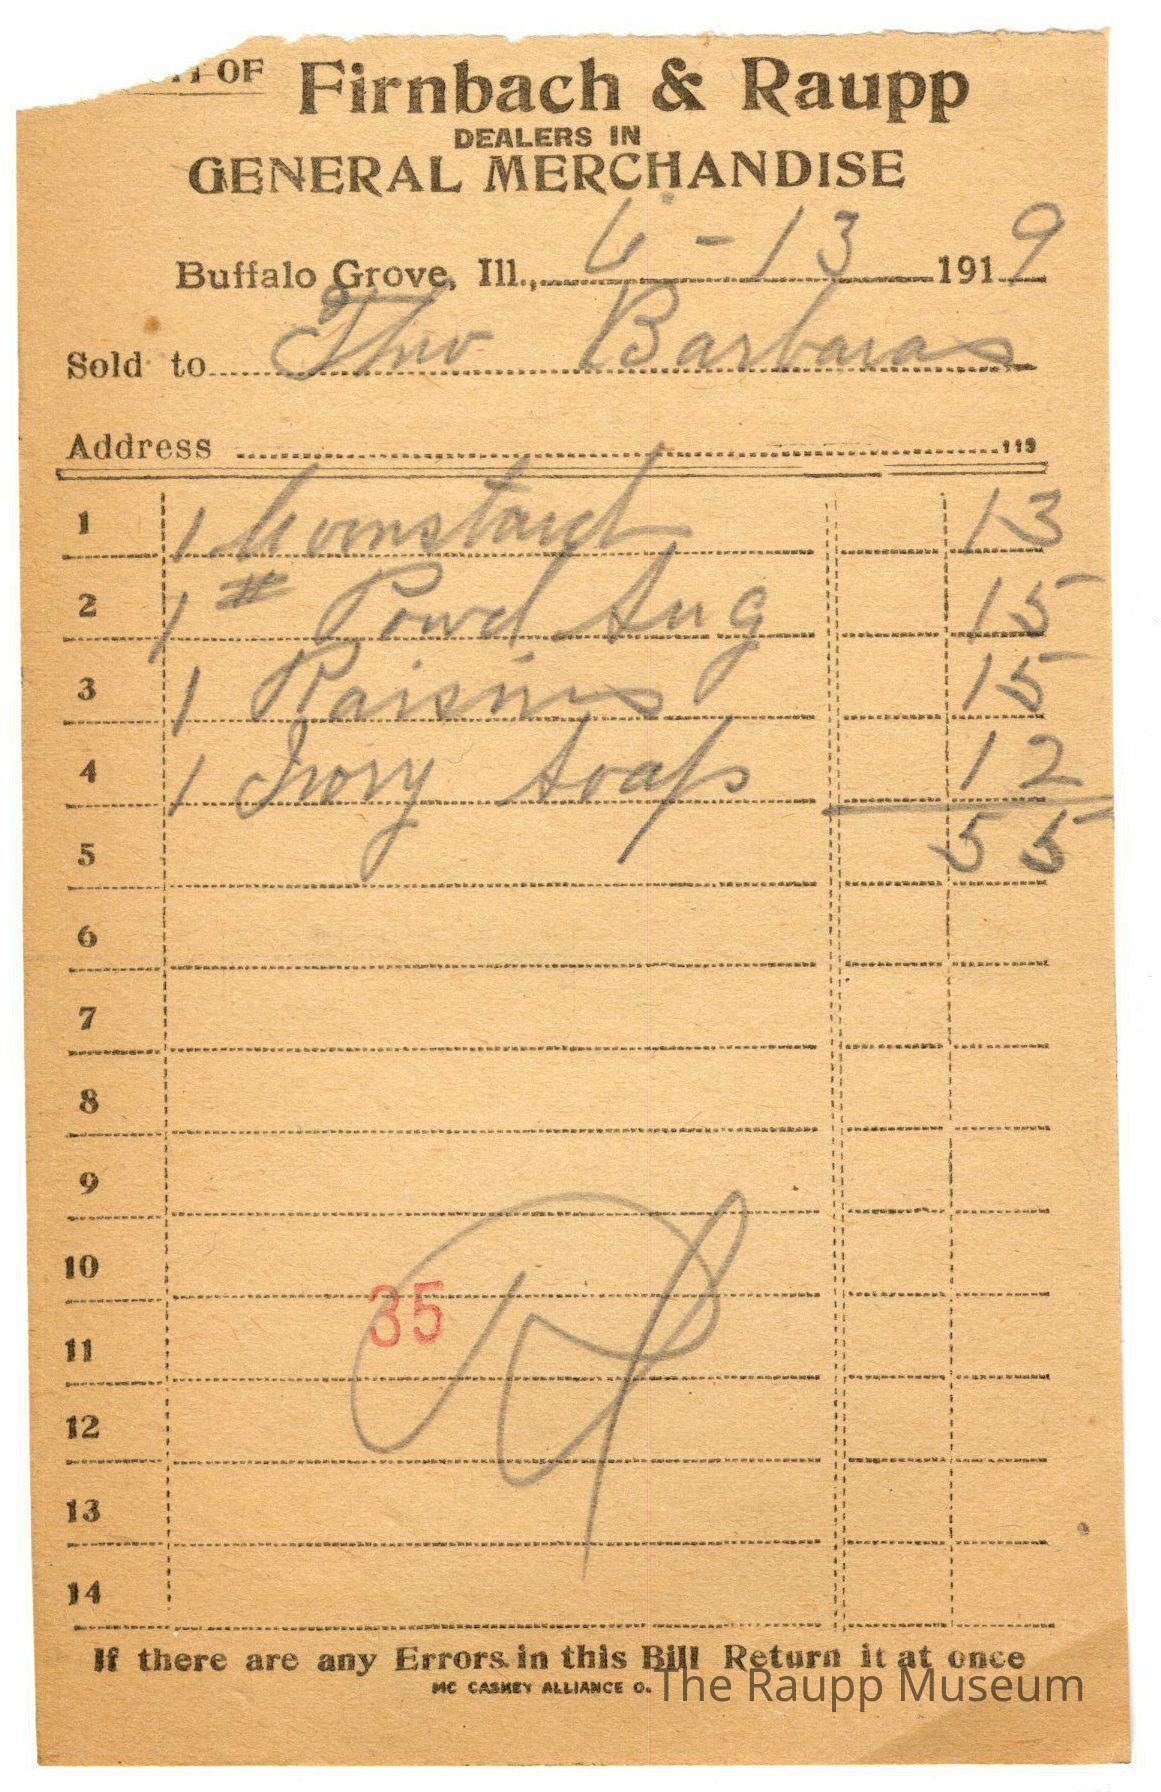 OF Firnbach & Raupp
DEALERS IN
GENERAL MERCHANDISE
Buffalo Grove, Ill., 6-13 1919
Sold to Theo Barbaras
Address 113
1 1 Cornstarch 13
2 1 # Powd Sug 15
3 1 Raisins 15
4 1 Ivory Soap 12
5 55
6
7
8
9
10
35
11
12
13
14
If there are any Errors in this Bill Return it at once
MC CASKEY ALLIANCE O.
The Raupp Museum